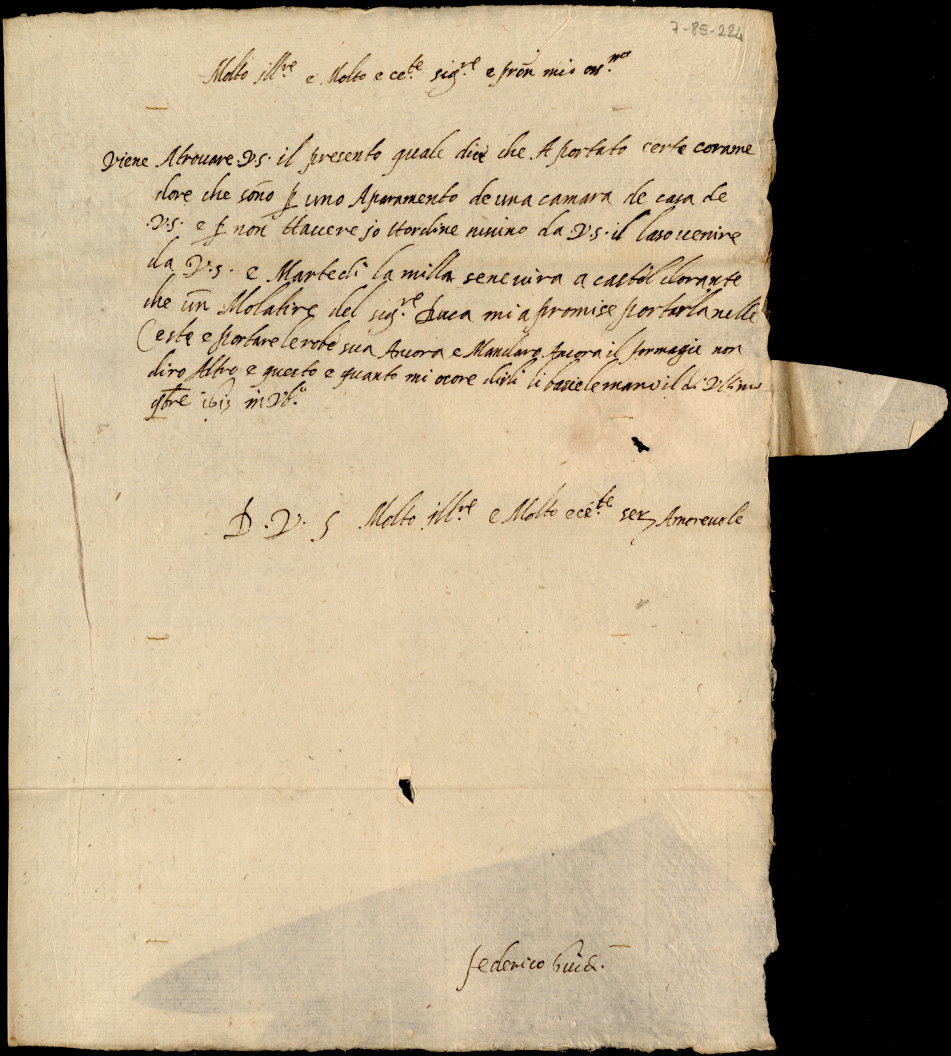 7-85-224
Molto ill.re e Molto ece.te sig.re e pron mio oss.mo
Viene Atrovare V.S. il presento quale dice che A portato certe corame
dore che sono p uno Aparamento de una camara de casa de
V.S. e p non Havere jo Hordine nisino da V.S. il laso venire
da V.S. e Martedi la milla senevira a castel dorante
che un Molatire del sig.re Luca mi a promise portarla nelle
Ceste e portare le robe sua Ancora e Mandaro Ancora il formagie non
diro Altro e questo e quanto mi ocore dirli li basie le mano il di Ultimo
9bre 1613 in Vb.o
D. V. S Molto ill.re e Molto ece.te ser Amorevole
federico